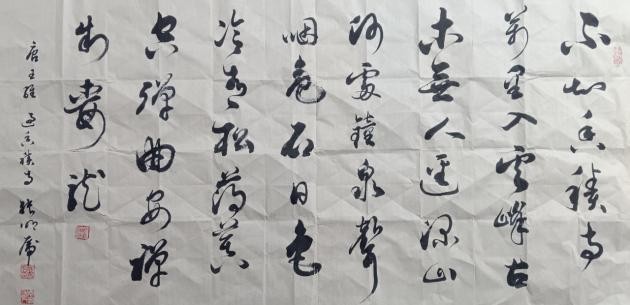 不知香積寺
數里入雲峰古
木無人逕深山
何處鐘泉聲
咽危石日色
冷青松薄暮
空潭曲安禪
制毒龍
唐王維 過香積寺 張明